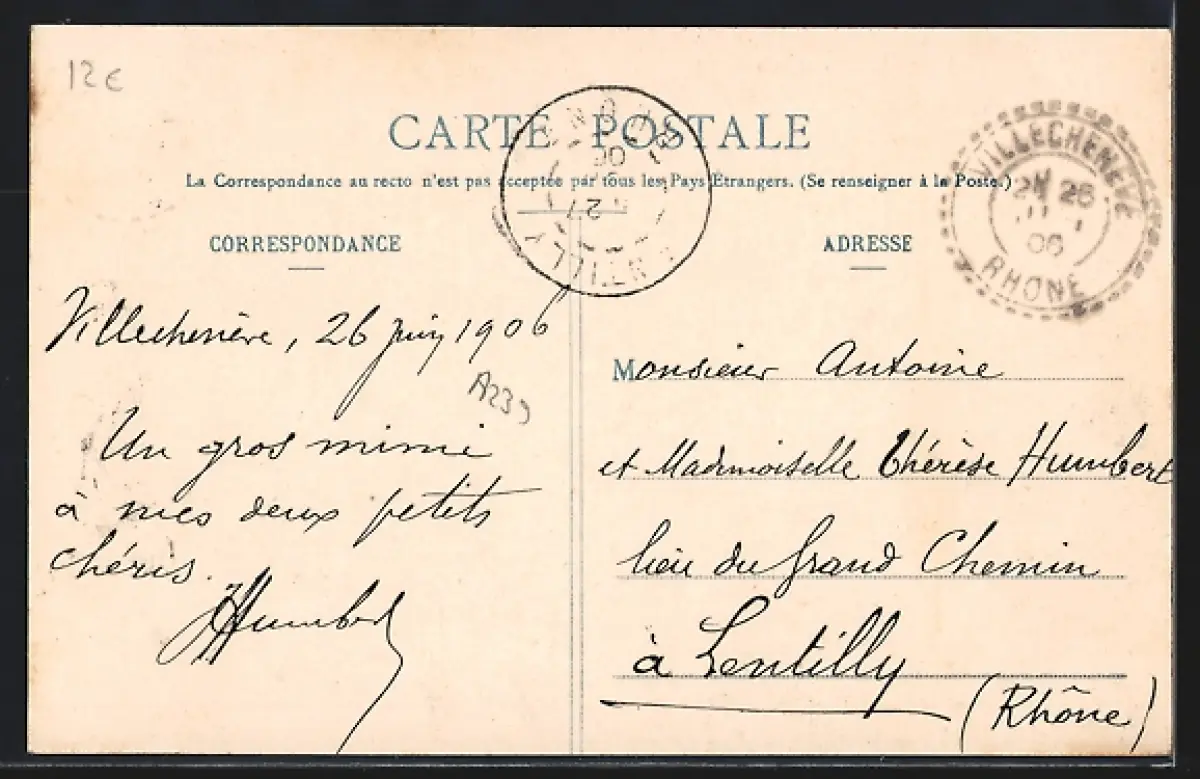 12€
CARTE POSTALE
La Correspondance au recto n'est pas acceptée par tous les Pays Etrangers. (Se renseigner à la Poste.)
CORRESPONDANCE
ADRESSE
VILLECHENÈVE
26
06
RHONE
LENTILLY
RHONE
27
06
Villechenève, 26 juin 1906
A239
Un gros mimi
à mes deux petits
chéris.
JHumbert
Monsieur Antoine
et Mademoiselle Thérèse Humbert
lieu du Grand Chemin
à Lentilly
(Rhône)